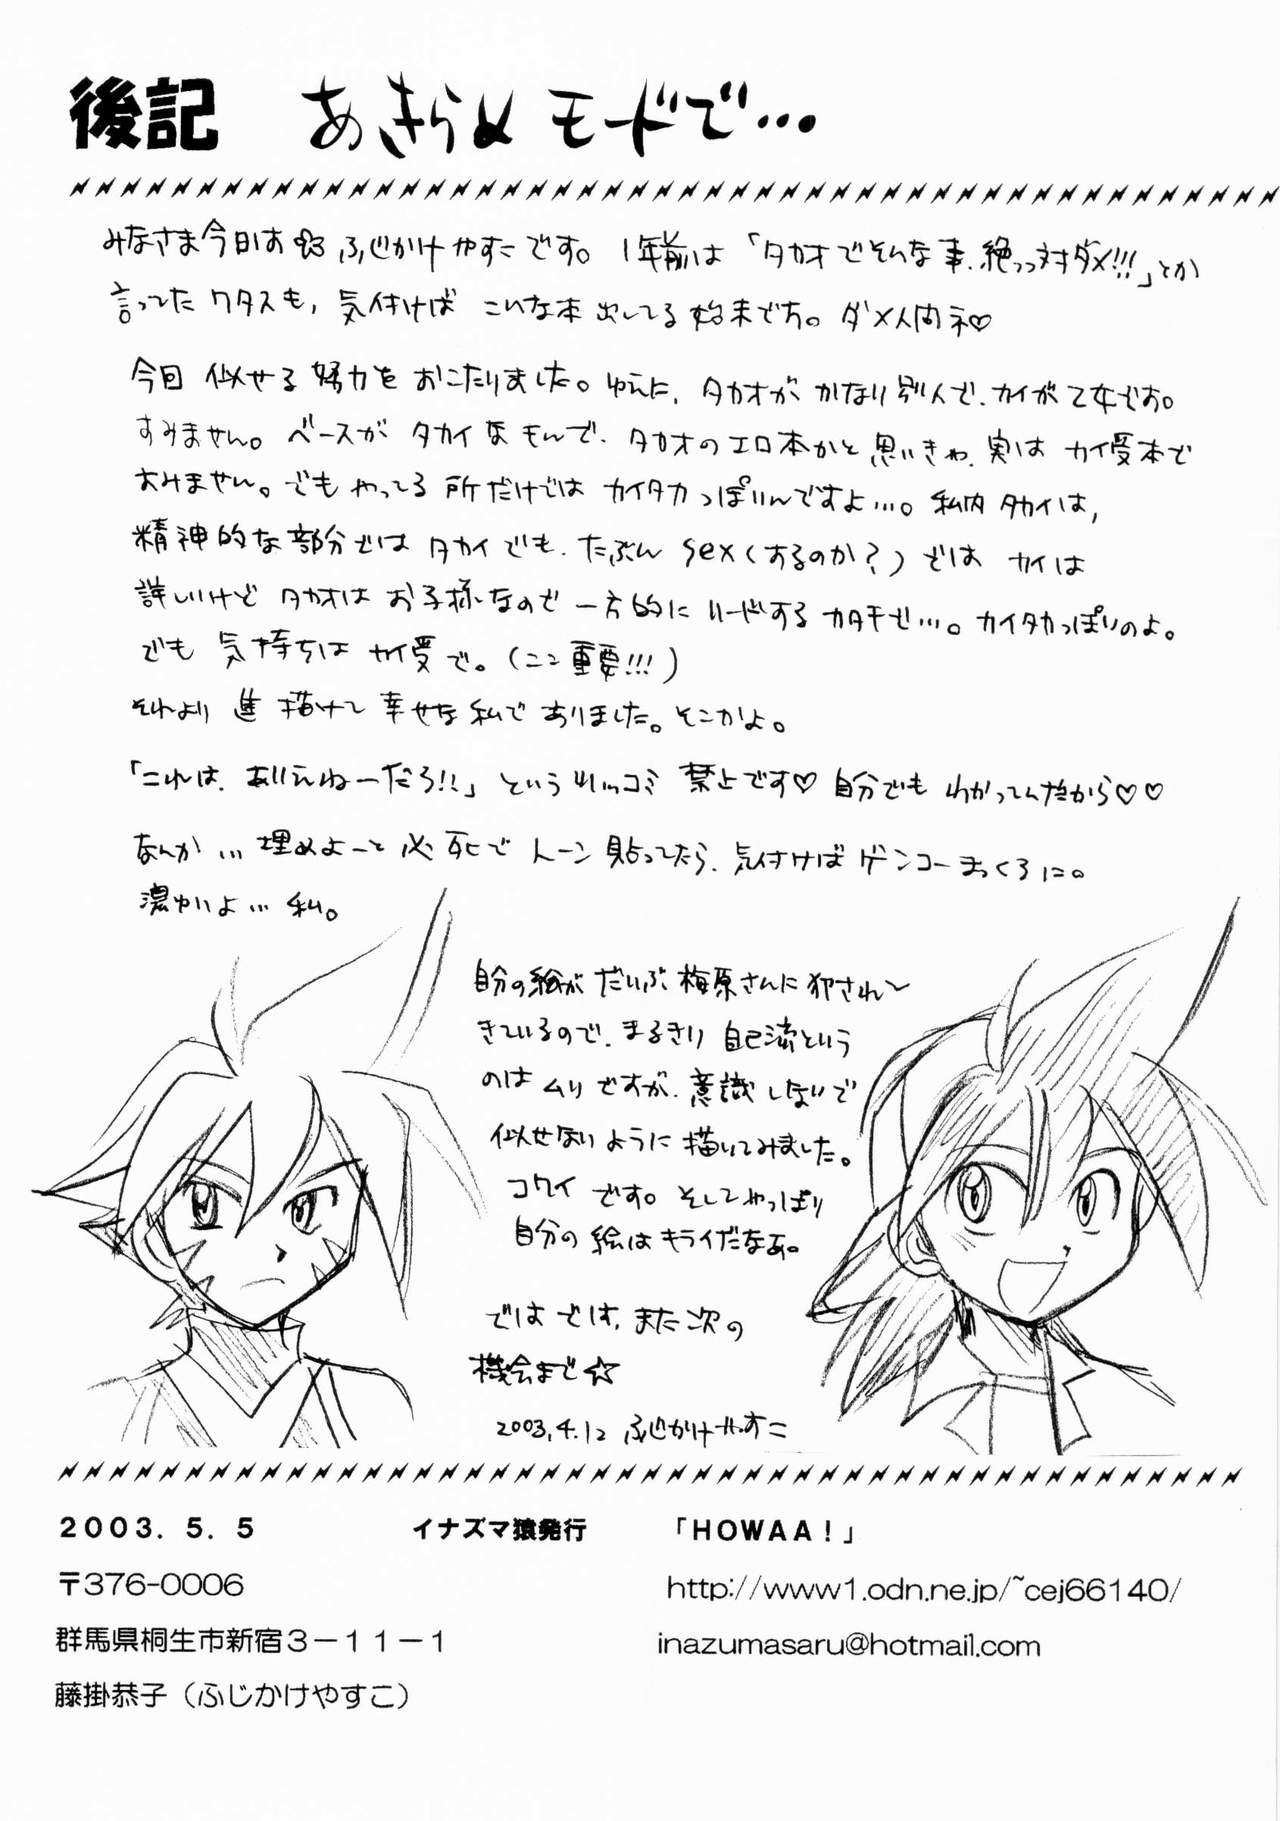 後記 あきらめモードで…
みなさま今日は ふじかけやすこです。1年前は「タカオでそんな事、絶っっ対ダメ!!!」とか
言ってたワタスも、気付けば こんな本出してる始末です。ダメ人間ネ♡
今回 似せる努力を おこたりました。ゆえに、タカオが かなり別人で、カイが乙女です。
すみません。ベースが タカイなもんで、タカオのエロ本かと思いきや、実は カイ受本で
すみません。でも やってる所だけでは カイタカっぽいんですよ…。私内タカイは、
精神的な部分では タカイでも、たぶん sex(するのか?)では カイは
詳しいけど タカオは お子様なので 一方的に リードするカタチで…。カイタカっぽいのよ。
でも 気持ちは カイ受で。(ココ重要!!!)
それより 進 描けて 幸せな私でありました。そこかよ。
「これは、ありえねーだろ!!」という ツッコミ 禁止です♡ 自分でも わかってんだから♡♡
なんか…埋めよーと 必死で トーン貼ってたら、気付けば ゲンコーまっくろに。
濃ゆいよ…私。
自分の絵が だいぶ 梅原さんに 犯されて
きているので、まるきり 自己流という
のは ムリですが、意識しないで
似せないように 描いてみました。
コワイ です。そしてやっぱり
自分の 絵は キライだなぁ。
ではでは、また次の
機会まで☆
2003.4.12 ふじかけやすこ
2003.5.5 イナズマ猿発行 「HOWAA!」
〒376-0006 http://www1.odn.ne.jp/~cej66140/
群馬県桐生市新宿3-11-1 inazumasaru@hotmail.com
藤掛恭子（ふじかけやすこ）